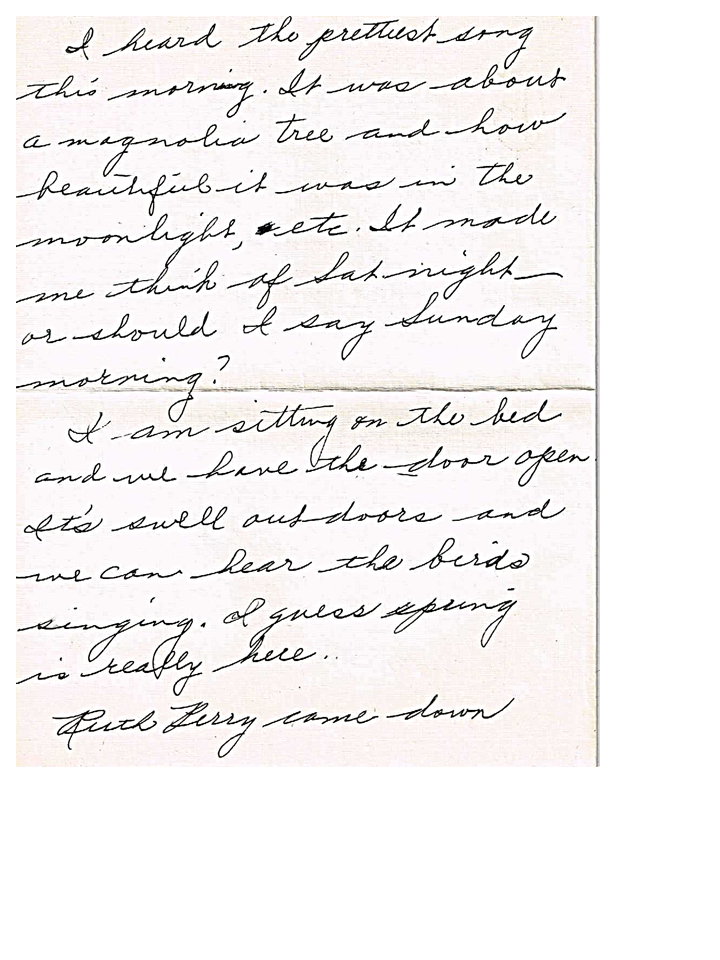 I heard the prettiest song
this morning. It was about
a magnolia tree and how
beautiful it was in the
moonlight, etc. It made
me think of Sat night—
or should I say Sunday
morning?
I am sitting on the bed
and we have the door open.
It's swell outdoors and
we can hear the birds
singing. I guess spring
is really here..
Ruth Perry came down